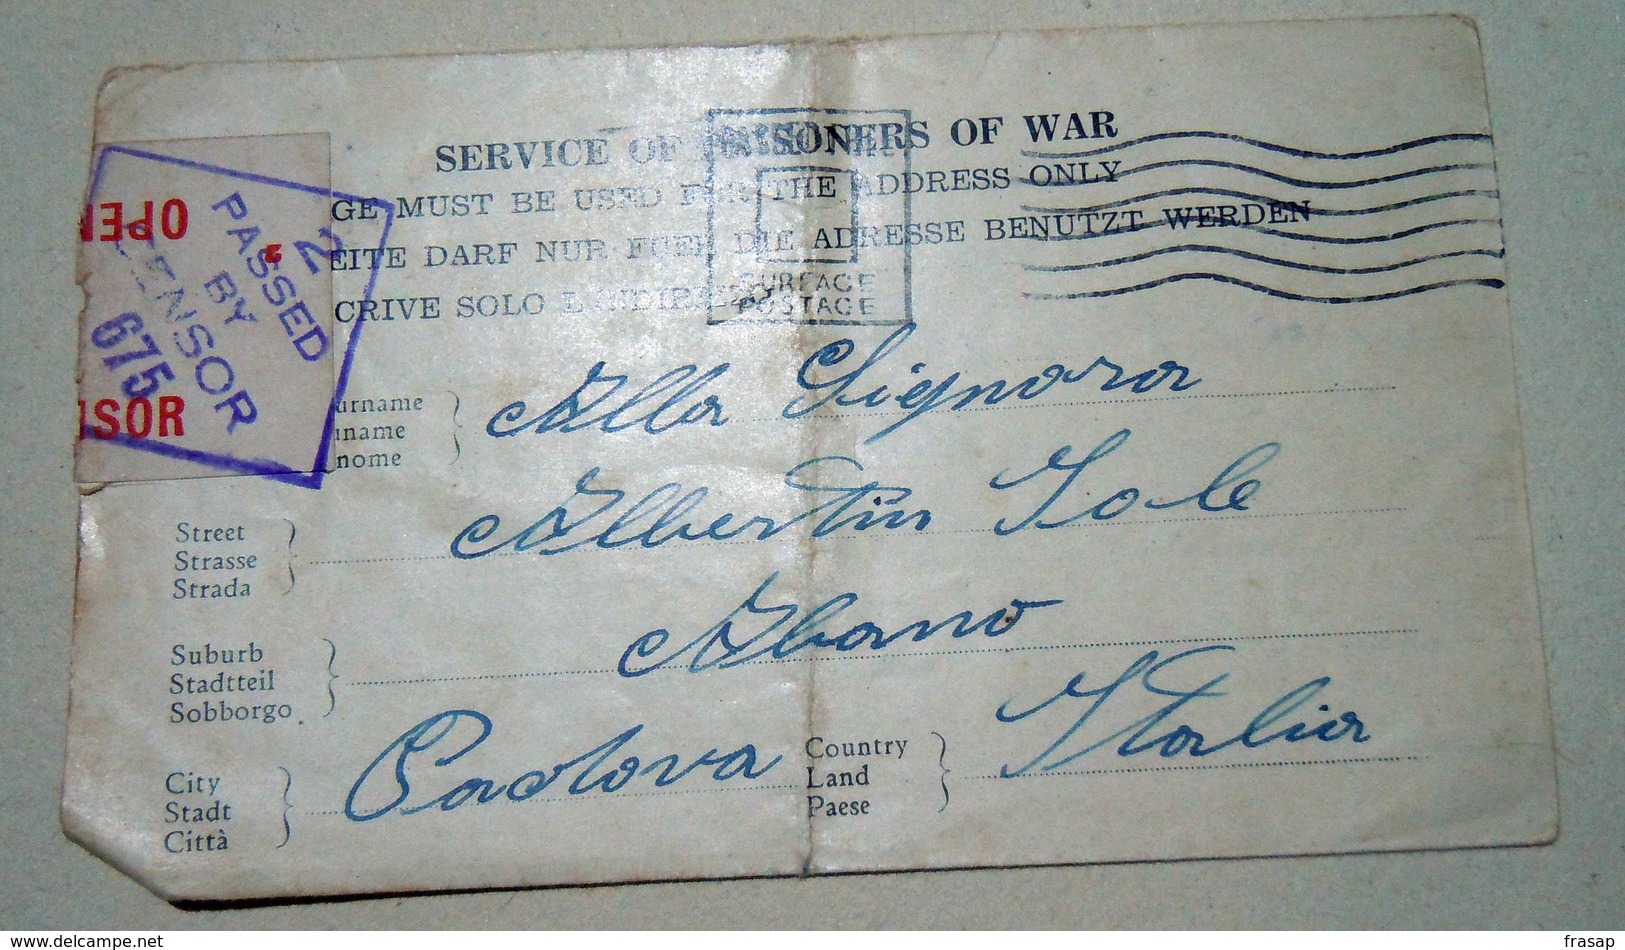 SERVICE OF PRISONERS OF WAR
GE MUST BE USED FOR THE ADDRESS ONLY
EITE DARF NUR FUER DIE ADRESSE BENUTZT WERDEN
CRIVE SOLO L'INDIRIZZO
SURFACE
POSTAGE
OPEN
2
PASSED
BY
CENSOR
675
ISOR
urname
uname
nome
Alla Signora
Street
Strasse
Strada
Albertin Iole
Suburb
Stadtteil
Sobborgo
Abano
City
Stadt
Città
Padova
Country
Land
Paese
Italia
www.delcampe.net
frasap